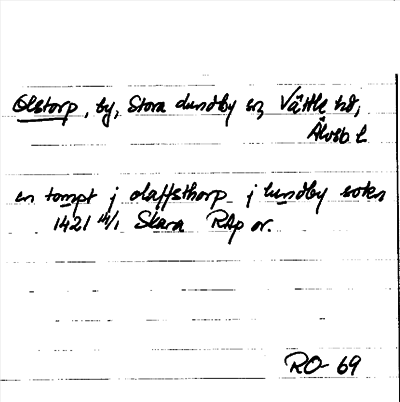 Olstorp, by, Stora Lundby sn, Vättle hd,
Älvsb. l
en tompt j olaffsthorp j lundby soken
1421 14/1 Skara RAp or.
RO 69